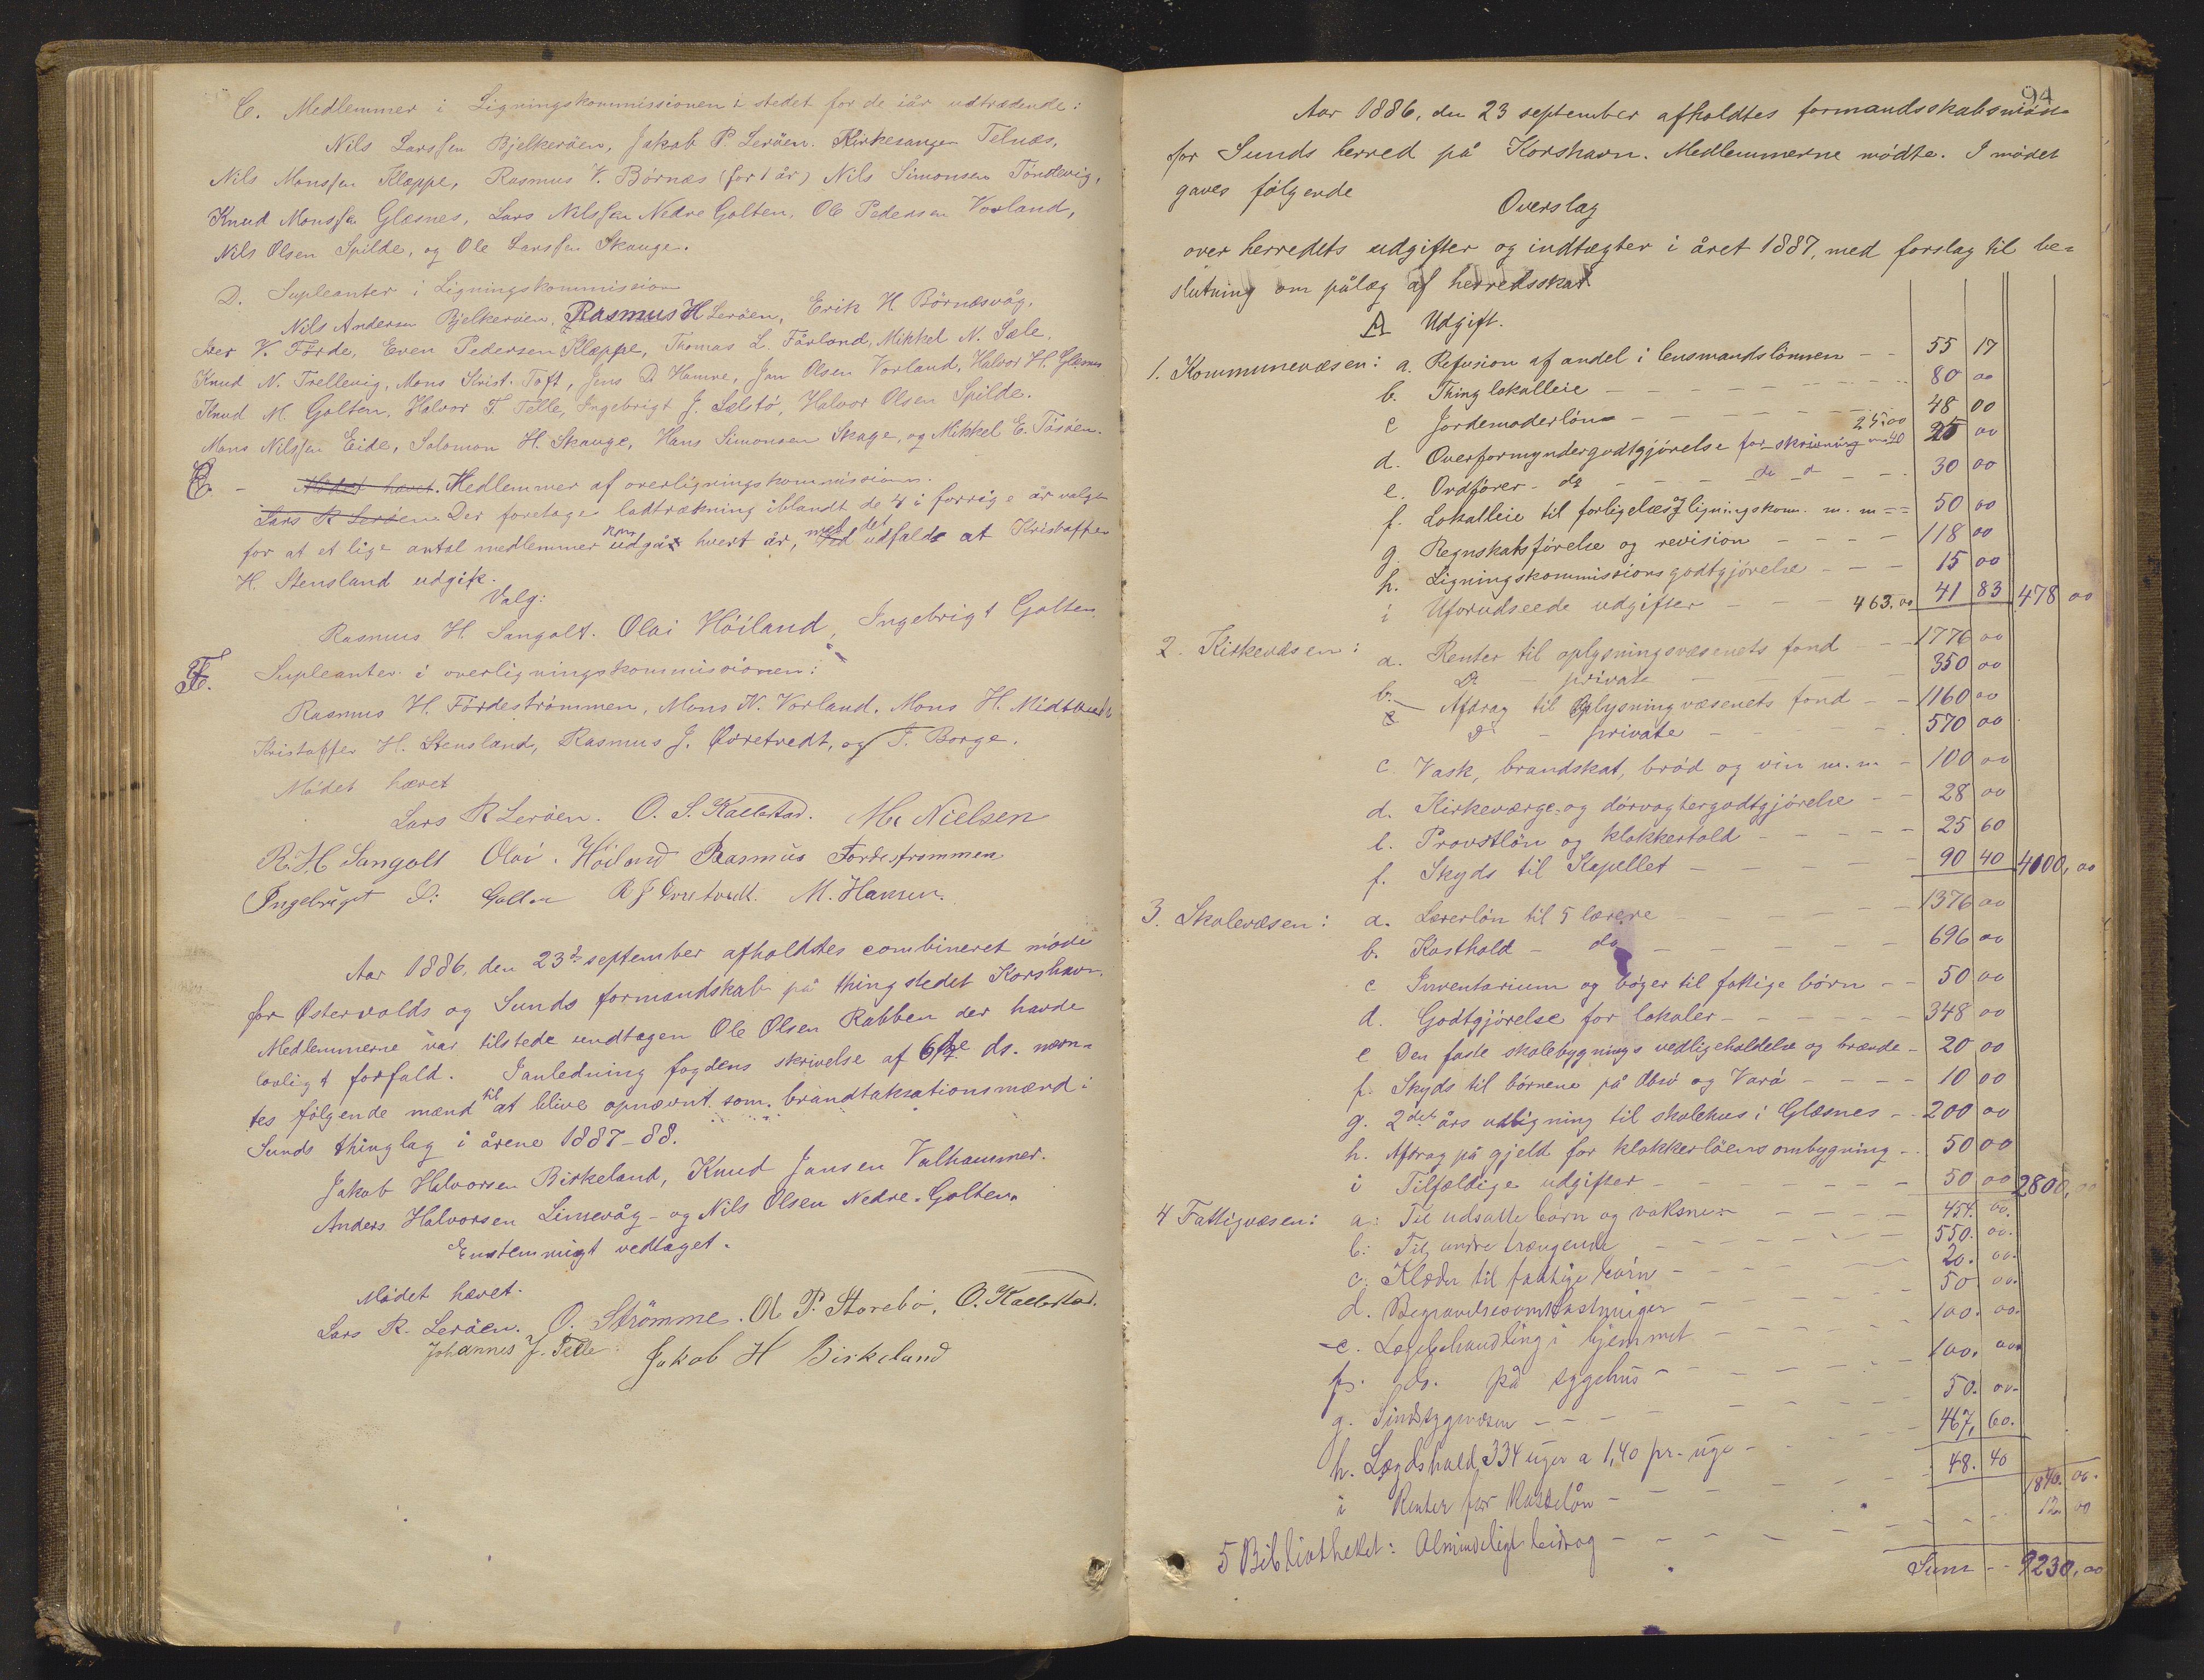 C. Medlemmer i Ligningskommissionen i stedet for de iår udtrædende:
Nils Larssen Bjelkeröen, Jakob P. Leröen. Kirkesanger Telnæs,
Nils Monssen Klæppe, Rasmus V. Börnæs (for 1 år) Nils Simonsen Töndevig,
Knud Monssen Glæsnes, Lars Nilssen Nedre Golten, Ole Pedersen Vorland,
Nils Olsen Spilde, og Ole Larssen Skauge.
D. Supleanter i Ligningskommission
Nils Andersen Bjelkeröen, Rasmus H Leröen, Erik H. Börnæsvåg,
Iver V. Förde, Even Pedersen Klæppe, Thomas L. Fårland, Mikkel N. Sæle,
Knud N. Trellevig, Mons Krist. Toft, Jens D. Hamre, Jan Olsen Vorland, Halvor H. Glæsnes
Knud M. Golten, Halvor T. Telle, Ingebrigt J. Sælstö, Halvor Olsen Spilde.
Mons Nilssen Eide, Salomon H. Skauge, Hans Simonsen Skage, og Mikkel E. Tösöen.
E. - Mödet hævet. Medlemmer af overligningskommissionen.
Lars R Leröen Der foretoges lodtrækning iblandt de 4 i forrige år valgte
for at et lige antal medlemmer kan udgå hvert år, med det udfald at Kristoffer
H. Stensland udgik.
Valg:
Rasmus H. Sangolt. Olai Höiland, Ingebrigt Golten.
F. Supleanter i overligningskommissionen:
Rasmus H. Fördeströmmen, Mons N. Vorland, Mons H. Midttveit
Kristoffer H. Stensland, Rasmus J. Övretvedt, og T. Borge.
Mödet hævet
Lars R Leröen. O. S. Kallestad. M. Nielsen
R. H. Sangolt Olai Höiland Rasmus Fördestrømmen
Ingebrigt O: Golten R J Övretvedt. M. Hansen.
Aar 1886, den 23de september afholdtes combineret möde
for Østervolds og Sunds formandskab på thingstedet Korshavn.
Medlemmerne var tilstede undtagen Ole Olsen Rabben der havde
lovligt forfald. I anledning fogdens skrivelse af 6te ds. nævn-
tes fölgende mænd til at blive opnævnt som brandtaksationsmænd i
Sunds thinglag i årene 1887-88.
Jakob Halvorsen Birkeland, Knud Jansen Valhammer.
Anders Halvorsen Limevåg - og Nils Olsen Nedre-Golten.
Enstemmigt vedtaget.
Mödet hævet.
Lars R. Leröen. O. Strömme. Ole P. Storebö, O. Kallestad.
Johannes J. Telle Jakob H Birkeland
94
Aar 1886, den 23 september afholdtes formandsskabsmöde
for Sunds herred på Korshavn. Medlemmerne mödte. I mödet
gaves fölgende
Overslag
over herredets udgifter og indtægter i året 1887, med forslag til be-
slutning om pålæg af herredsskat
A Udgift.
1. Kommunevæsen: a. Refusion af andel i lensmandslönnen - - 55 17
b. Thinglokalleie - - - 80 00
c Jordemoderlön - - - 48 00
25,00
d. Overformyndergodtgjörelse for skrivning m 40 25 00
e. Ordförer - do - - - do d - - 30 00
f. Lokalleie til forligelses & ligningskom. m. m - - 50 00
g Regnskabsförelse og revision - - - - 118 00
h. Ligningskommissionsgodtgjörelse - - - 15 00
i Uforudseede udgifter - - - 463,00 41 83 478 00
2. Kirkevæsen: a. Renter til oplysningsvæsenets fond - - 1776 00
Do - private - - - 350 00
b. Afdrag til Oplysningvæsenets fond - - 1160 00
Do - private - - - 570 00
c Vask, brandskat, bröd og vin m. m - 100 00
d. Kirkeværge- og dörvogtergodtgjörelse - - 28 00
e. Provstlön og klokkertold - - - - 25 60
f. Skyds til Kapellet - - - - 90 40 4100,00
3. Skolevæsen: a. Lærerlön til 5 lærere - - - 1376 00
b. Kosthold - do - - - 696 00
c Inventarium og böger til fattige börn - - 50 00
d. Godtgjörelse for lokaler - - - - - 348 00
e Den faste skolebygnings vedligeholdelse og brænde - 20 00
f. Skyds til börnene på Absö og Varö - - - - 10 00
g. 2det års udligning til skolehus i Glæsnes - - 200 00
h. Afdrag på gjeld for klokkerlöens ombygning - - 50 00
i Tilfældige udgifter - - - - - 50 00 2800,00
4 Fattigvæsen: a: Til udsatte börn og voksne: - - - - 454. 00.
b: Til andre trængende - - - 550. 00.
c: Klæder til fattige börn - - - 20. 00.
d. Begravelsesomkostninger - - - 50 00.
e. Lægebehandling i hjemmet - - - 100. 00.
f. do. på sygehus - - - 100. 00
g. Sindssygevæsen - - - 50. 00.
h. Lægdshold 334 uger a 1,40 pr. uge - - 467, 60.
i Renter for Kasselån - - - 48. 40 1840. 00.
5 Bibliotheket: Almindeligt bidrag - - - 12. 00
Sum - - 9230,00